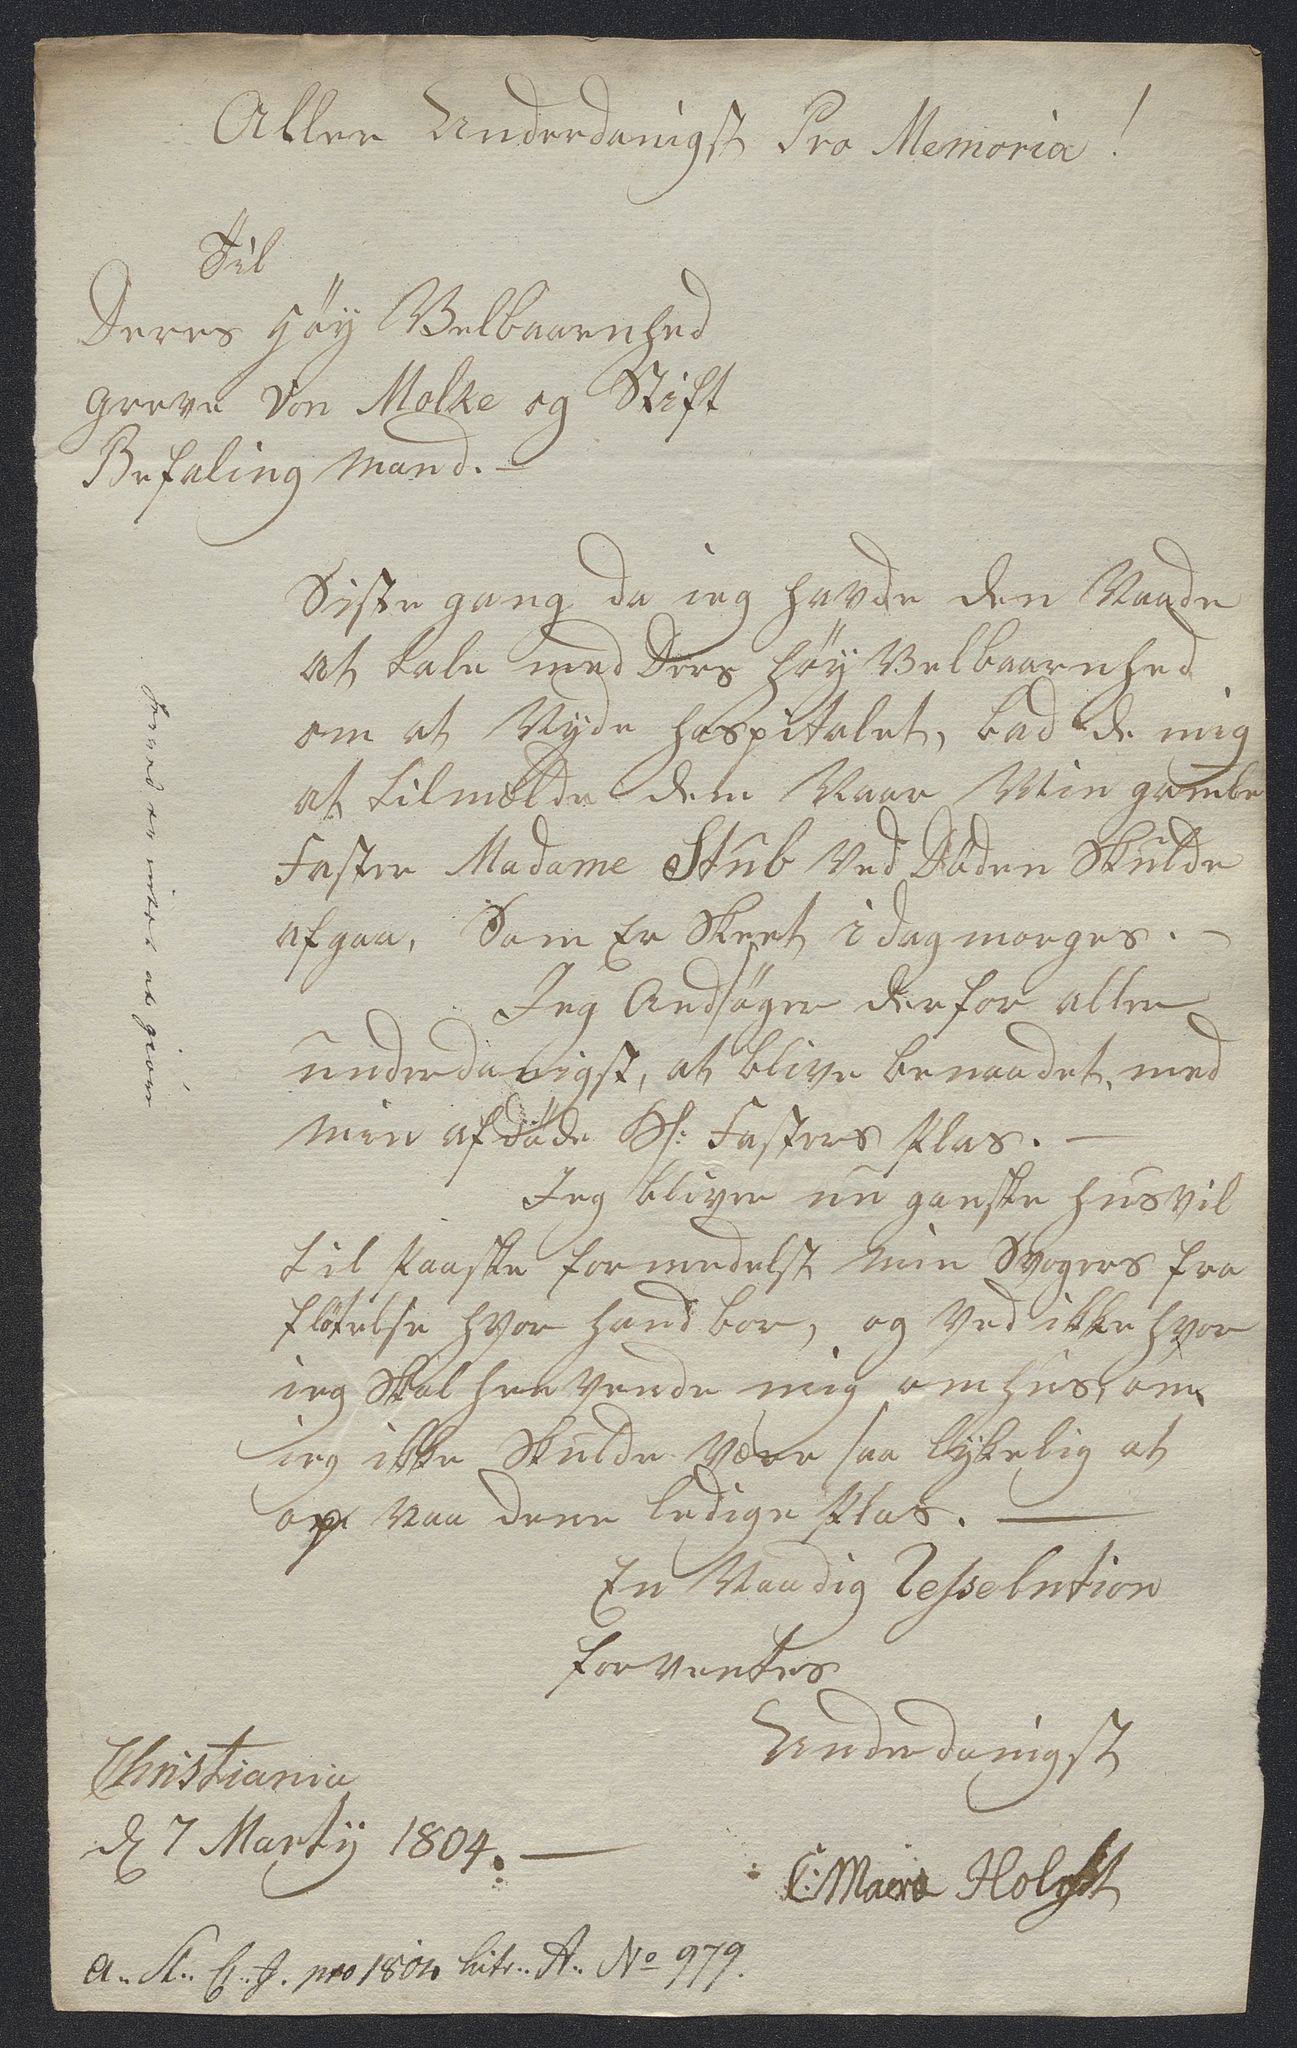 Aller Underdanigst Pro Memoria!
Til
Deres Höÿ Velbaarenhed
Greve von Molke og Stift
Befaling Mand. —
Siste gang da ieg havde den Naade
at tale med Deres Höÿ Velbaarenhed
om at Nyde Hospitalet, bad de mig
at tilmelde dem Naar Min gamle
Faster Madame Stub ved Döden Skulde
afgaa, Som Er Skeet i dag morges. —
Jeg Andsöger derfor aller
underdanigst, at blive benaadet med
min afdöde Sl: Fasters Plas. —
Jeg bliver nu ganske husvil
til Paaske formedelst min Svogers fra
fløtelse hvor hand bor, og ved ikke hvor
ieg Skal hen vende mig om hus, om
ieg ikke Skulde være saa lÿkelig at
op Naa dene ledige Plas. —
En Naadig Resselution
forventes
Underdanigst
Christiania
d 7 Martÿ 1804. —
C: Maria Holdst
a.. K.. C.. J. pro 1804 Litr.. A.. No 979.
herved er intet at giöre